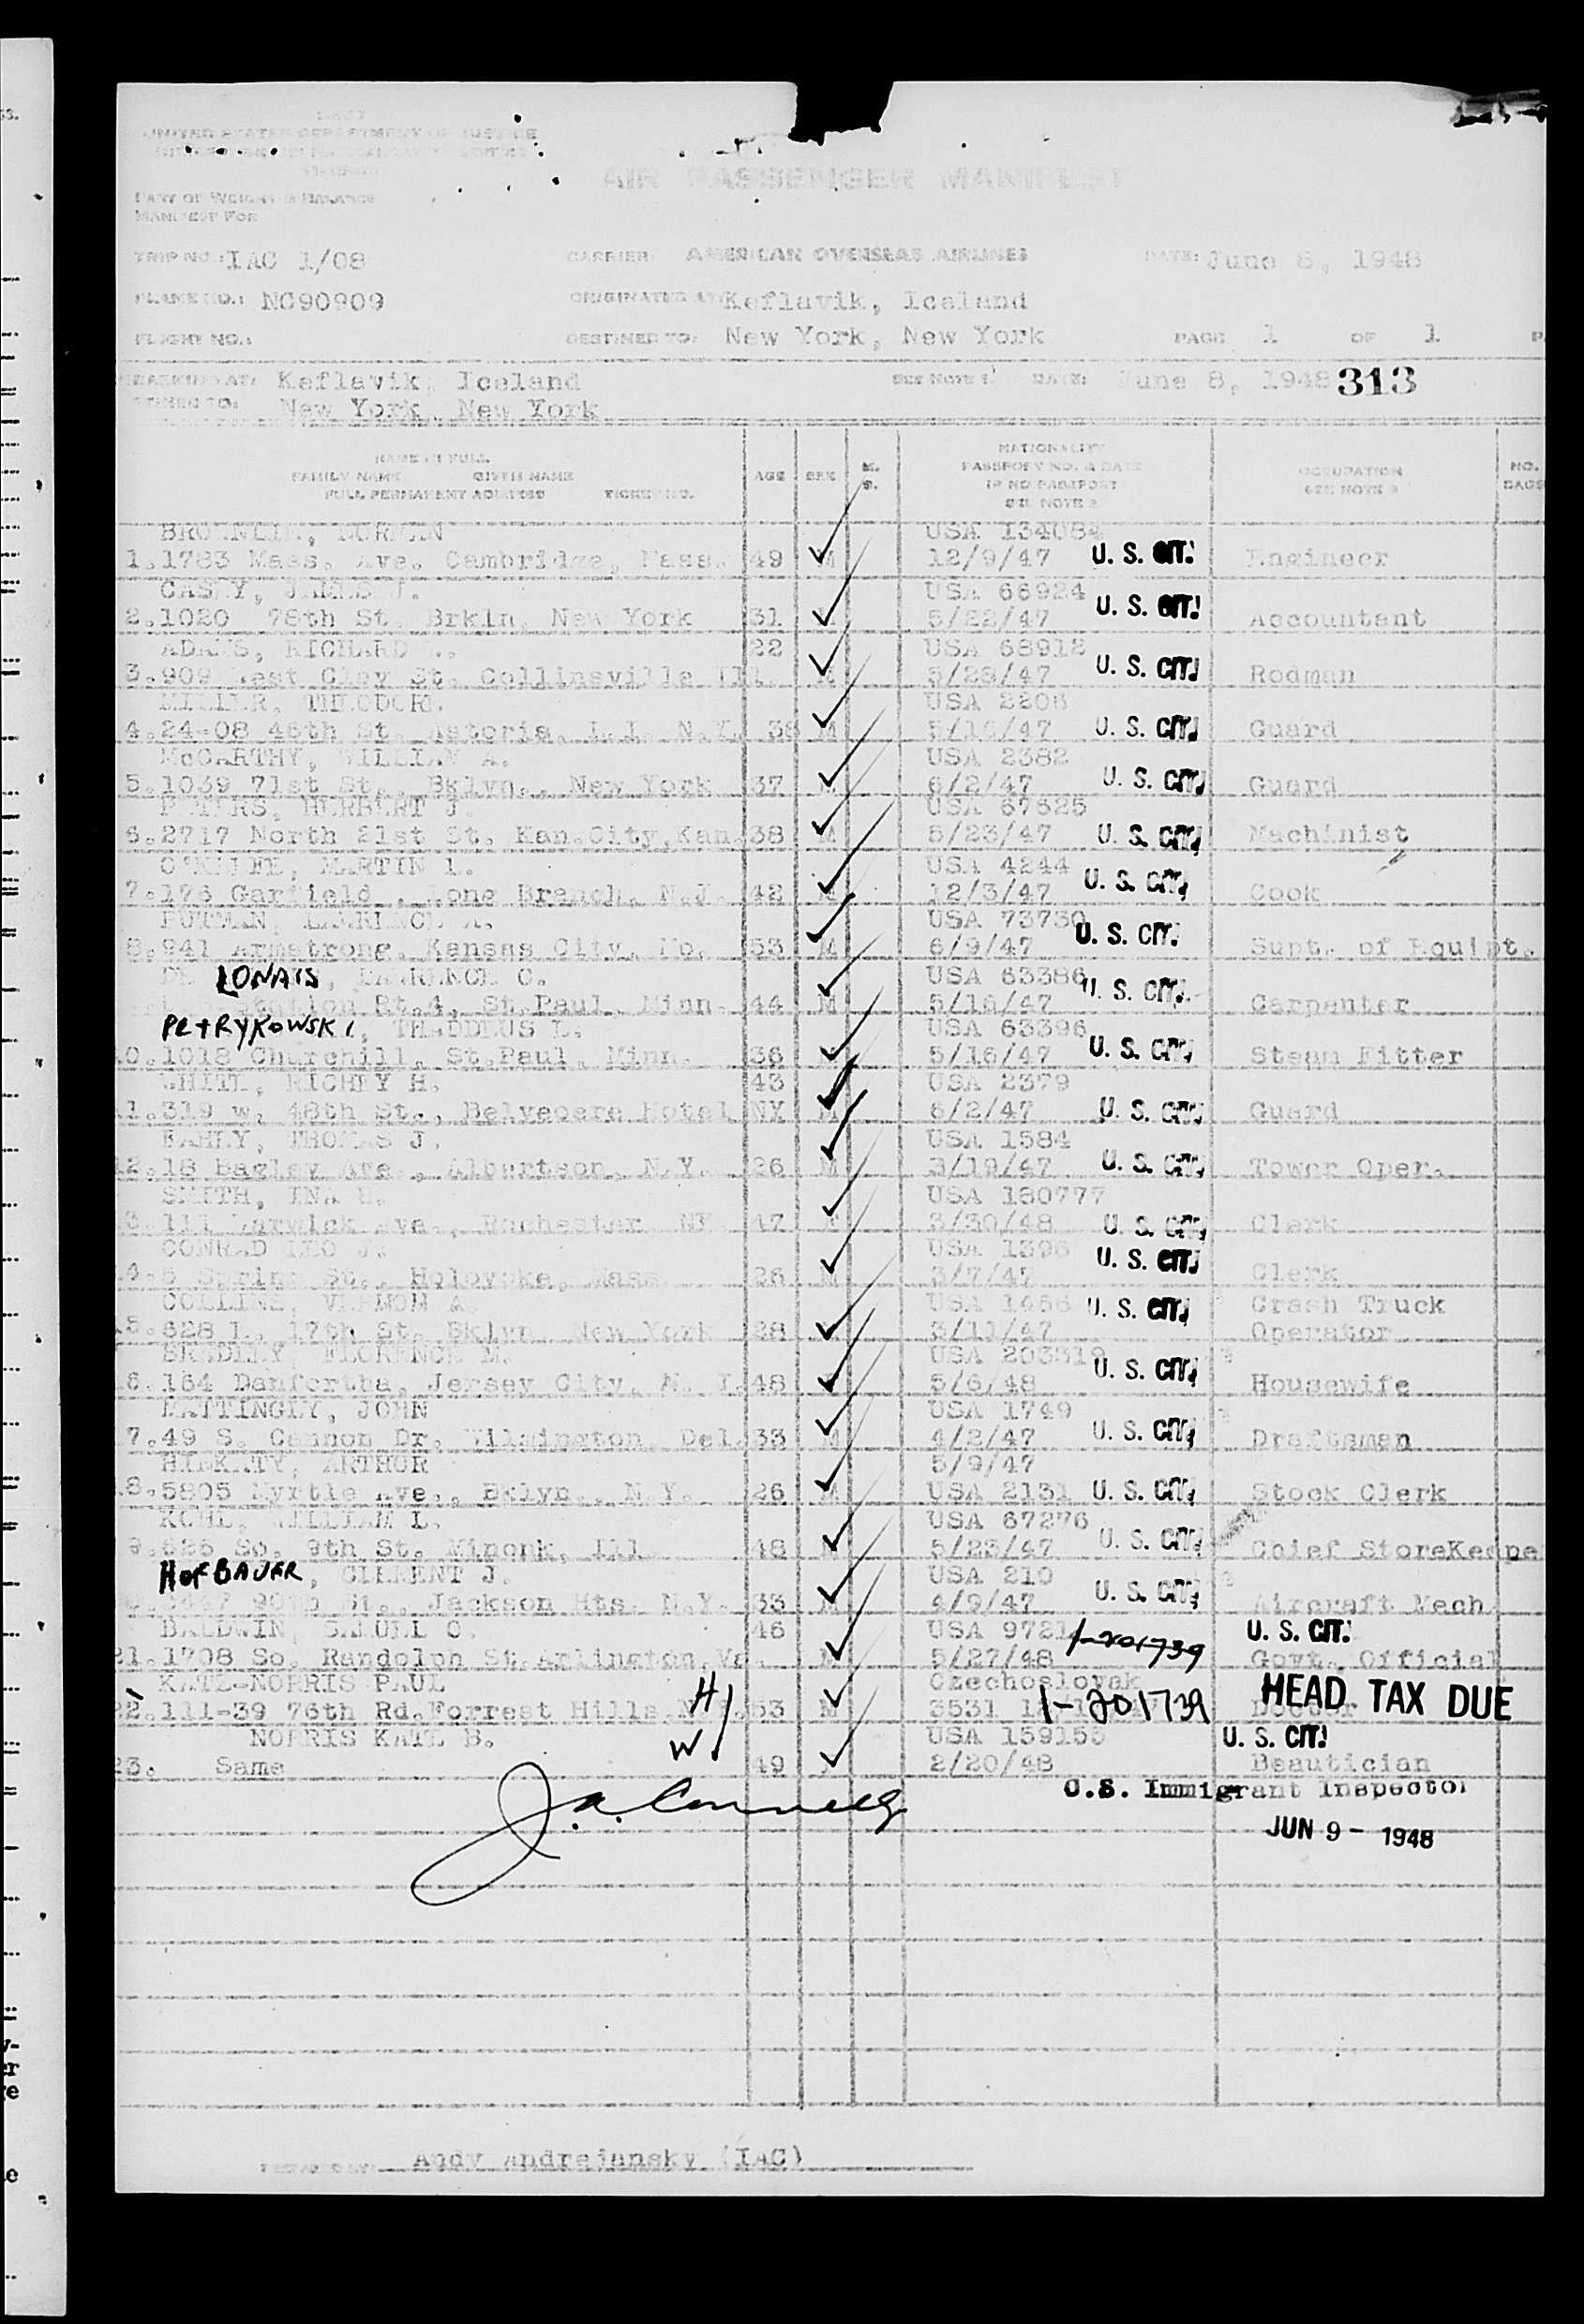 UNITED STATES DEPARTMENT OF JUSTICE
AIR PASSENGER MANIFEST
PART OF WEIGHT & BALANCE
MANIFEST FOR
TRIP NO.: IAC 1/08 CARRIER: AMERICAN OVERSEAS AIRLINES DATE: June 8, 1948
PLANE NO.: NC90909 ORIGINATED AT Keflavik, Iceland
FLIGHT NO.: DESTINED TO: New York, New York PAGE 1 OF 1
Keflavik, Iceland SEE NOTE 1 DATE: June 8, 1948 313
New York, New York
NAME IN FULL
FAMILY NAME GIVEN NAME
FULL PERMANENT ADDRESS TICKET NO.
AGE SEX M. S.
NATIONALITY
PASSPORT NO. & DATE
IF NO PASSPORT
SEE NOTE 2
OCCUPATION
SEE NOTE 3
NO. BAGS
USA 134084
1. 1783 Mass. Ave. Cambridge, Mass. 49 M 12/9/47 U. S. CIT. Engineer
CASEY, JAMES J. USA 66924
2. 1020 78th St. Brkln, New York 31 5/22/47 U. S. CIT. Accountant
ADAMS, RICHARD 22 USA 68912
3. 909 East Clay St. Collinsville Ill. 5/28/47 U. S. CIT. Rodman
MILLER, THEODORE USA 2206
4. 24-08 46th St. Astoria, L.I. N.Y. 38 M 5/16/47 U. S. CIT. Guard
McCARTHY, WILLIAM A. USA 2382
5. 1039 71st St., Bklyn., New York 37 M 6/2/47 U. S. CIT. Guard
PETERS, HERBERT J. USA 67625
6. 2717 North 21st St. Kan.City,Kan. 38 M 5/23/47 U. S. CIT. Machinist
O'KEEFE, MARTIN L. USA 4244
7. 176 Garfield , Long Branch, N.J. 42 M 12/3/47 U. S. CIT. Cook
PUTMAN, LAWRENCE A. USA 73730
8. 941 Armstrong, Kansas City, Mo. 53 M 6/9/47 U. S. CIT. Supt. of Equipt.
DE LONAIS, LAWRENCE C. USA 63386
Station Rt.4, St.Paul, Minn. 44 M 5/16/47 U. S. CIT. Carpenter
PETRYKOWSKI, THADDEUS L. USA 63396
0. 1018 Churchill, St.Paul, Minn. 36 M 5/16/47 U. S. CIT. Steam Fitter
WHITE, RICHEY H. 43 USA 2379
1. 319 w. 48th St., Belvedere Hotel NY M 6/2/47 U. S. CIT. Guard
THOMAS J. USA 1584
2. 18 Bagley Ave., Albertson, N.Y. 26 M 3/19/47 U. S. CIT. Tower Oper.
SMITH, INA USA 180777
3. 111 Warwick Ave., Rochester NY 47 3/30/48 U. S. CIT. Clerk
CONRAD LEO J. USA 1396
4. 5 Spring St., Holoyoke, Mass. 26 M 3/7/47 U. S. CIT. Clerk
COLLINS, VERNON A. USA 1466 U. S. CIT. Crash Truck
5. 628 E. 17th St. Bklyn New York 28 3/11/47 Operator
BRADLEY, FLORENCE M. USA 203319
6. 164 Danforthe, Jersey City, N. J. 48 5/6/48 U. S. CIT. Housewife
MATTINGLY, JOHN USA 1749
7. 49 S. Cannon Dr, Wilmington, Del. 33 M 4/2/47 U. S. CIT. Draftsman
ARTHUR 5/9/47
8. 5805 Myrtle Ave., Bklyn., N.Y. 26 M USA 2131 U. S. CIT. Stock Clerk
KOHL, WILLIAM L. USA 67276
9. 626 So. 9th St. Minonk, Ill 48 5/23/47 U. S. CIT. Chief StoreKeepe
HOFBAUER, CLEMENT J. USA 210
90th St., Jackson Hts. N.Y. 33 M 4/9/47 U. S. CIT. Aircraft Mech
BALDWIN, SAMUEL C. 46 USA 9721 1-201739 U. S. CIT.
21. 1708 So. Randolph St.Arlington,Va. M 5/27/48 Govt. Official
KATZ-NORRIS PAUL Czechoslovak
22. 111-39 76th Rd.Forrest Hills,N.Y. H 53 M 3531 1-201739 HEAD TAX DUE Doctor
NORRIS KATE B. W USA 159155 U. S. CIT.
23. Same 49 2/20/48 Beautician
J. A. Connelly U.S. Immigrant Inspector
JUN 9 - 1948
PREPARED BY: Andy Andrejansky (IAC)